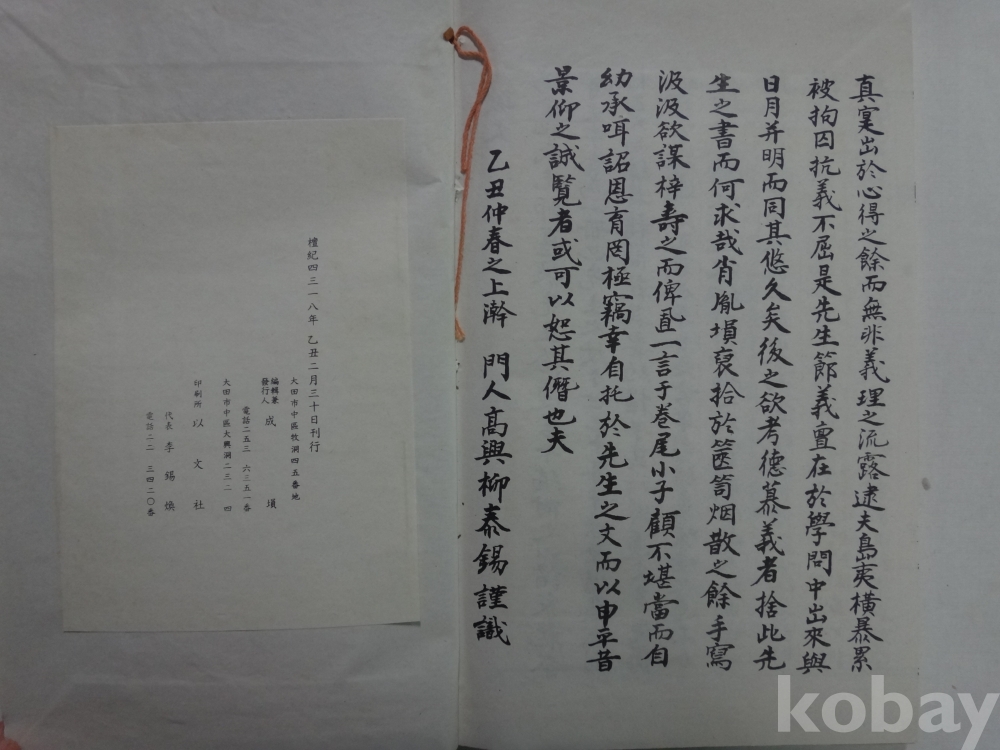 真寔出於心得之餘而無非義理之流露逮夫島夷橫暴累
被拘囚抗義不屈是先生節義亶在於學問中出來與
日月并明而同其悠久矣後之欲考德慕義者捨此先
生之書而何求哉肖胤塤裒拾於篋笥烟散之餘手寫
汲汲欲謀梓壽之而俾亶一言于卷尾小子顧不堪當而自
幼承咡詔恩育罔極竊幸自托於先生之文而以申平昔
景仰之誠覽者或可以恕其僭也夫
乙丑仲春之上澣 門人高興柳泰錫謹識
檀紀四三一八年 乙丑二月三十日刊行
大田市中區牧洞四五番地
編輯兼發行人 成塤
電話二五三 六三五一番
大田市中區大興洞二三二 四
印刷所 以文社
代表 李錫煥
電話二二 三四二〇番
kobay